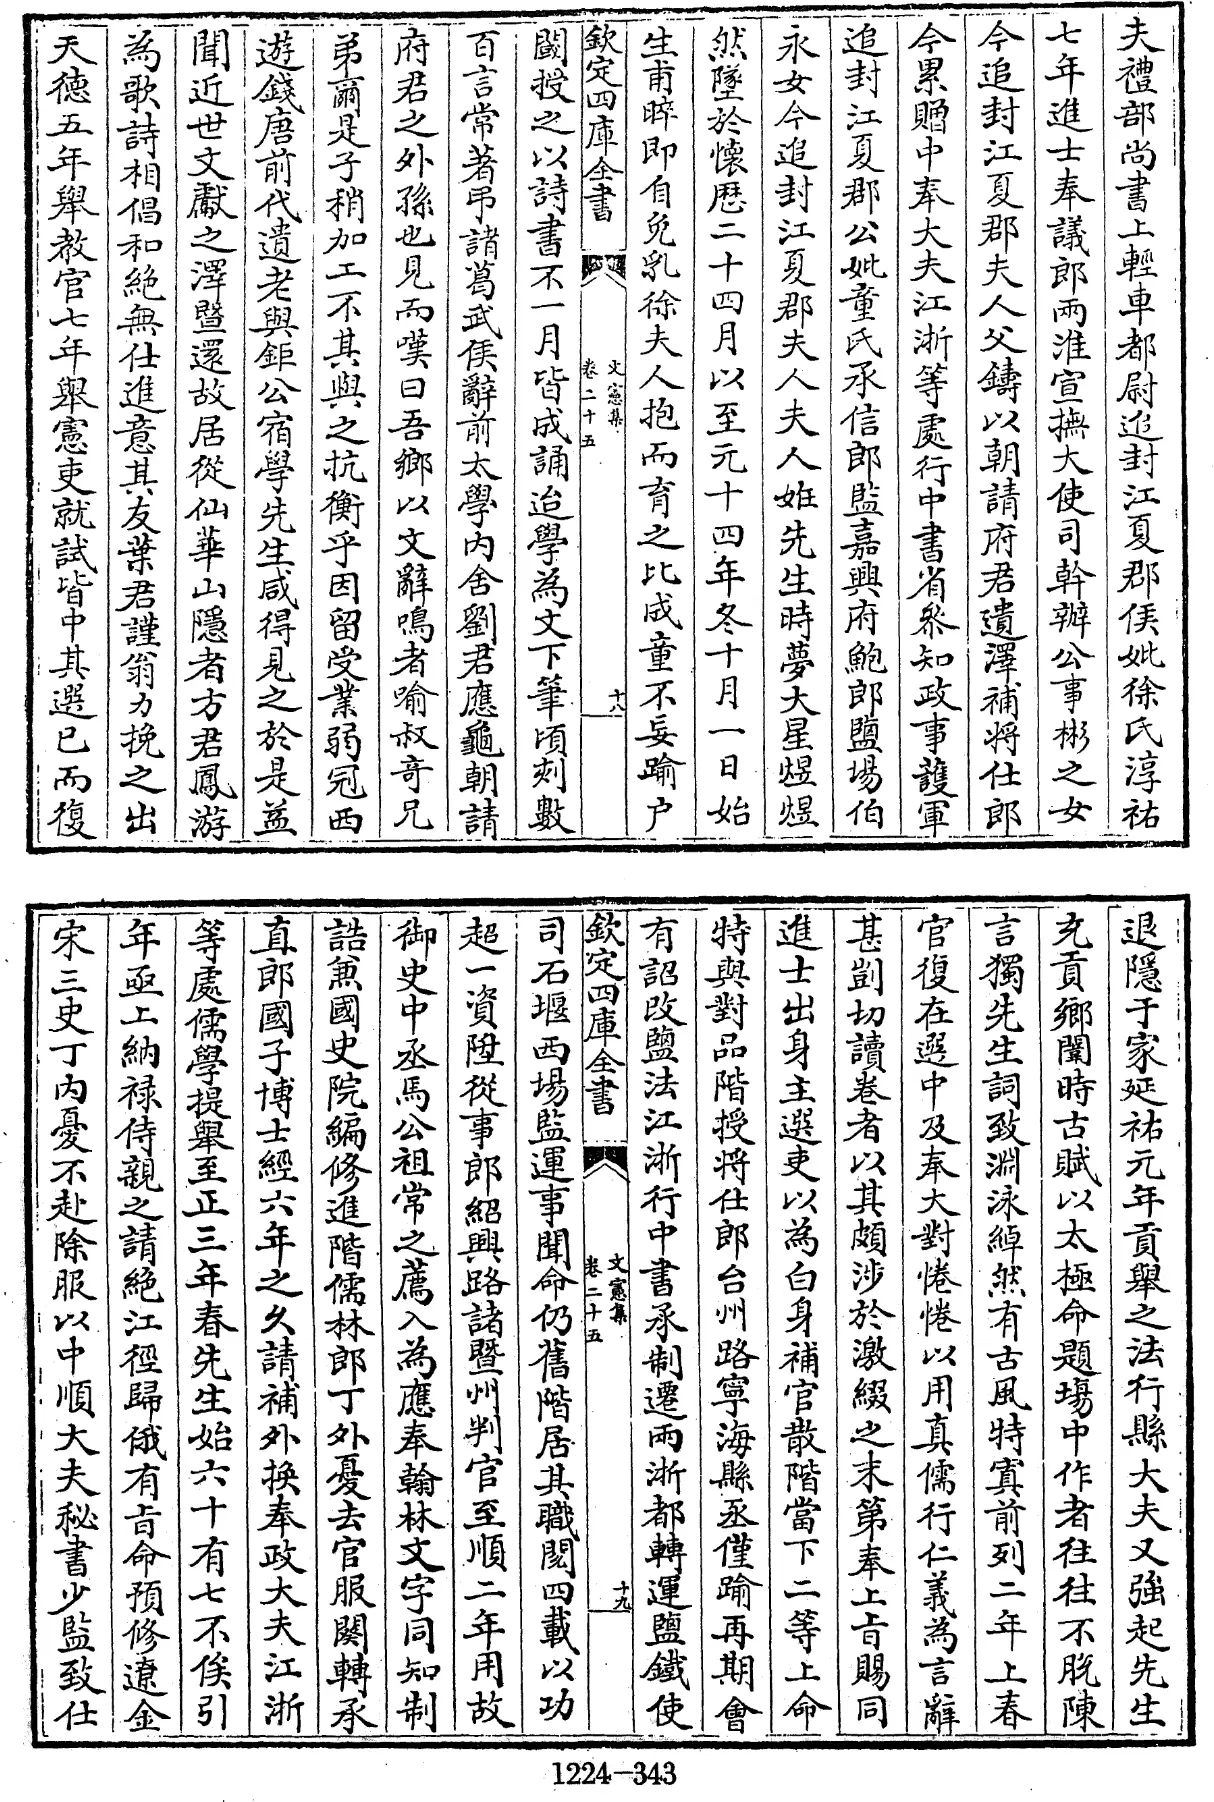 夫禮部尚書上輕車都尉追封江夏郡侯妣徐氏淳祐
七年進士奉議郎兩淮宣撫大使司幹辦公事彬之女
今追封江夏郡夫人父鑄以朝請府君遺澤補將仕郎
今累贈中奉大夫江浙等處行中書省叅知政事護軍
追封江夏郡公妣童氏承信郎監嘉興府鮑郎鹽場伯
永女今追封江夏郡夫人夫人姙先生時夢大星煜煜
然墜於懐歴二十四月以至元十四年冬十月一日始
生甫晬即自免乳徐夫人抱而育之比成童不妄踰户
欽定四庫全書
文憲集
卷二十五
十八
閾授之以詩書不一月皆成誦迨學為文下筆頃刻數
百言常著弔諸葛武侯辭前太學内舍劉君應龜朝請
府君之外孫也見而嘆曰吾鄉以文辭鳴者喻叔竒兄
弟爾是子稍加工不其與之抗衡乎因留受業弱冠西
遊錢唐前代遺老與鉅公宿學先生咸得見之於是益
聞近世文獻之澤暨還故居從仙華山隱者方君鳳游
為歌詩相倡和絶無仕進意其友葉君謹翁力挽之出
天德五年舉教官七年舉憲吏就試皆中其選已而復
退隱于家延祐元年貢舉之法行縣大夫又強起先生
充貢鄉闈時古賦以太極命題場中作者往往不脱陳
言獨先生詞致淵泳綽然有古風特寘前列二年上春
官復在選中及奉大對惓惓以用真儒行仁義為言辭
甚剴切讀卷者以其頗涉於激綴之末第奉上旨賜同
進士出身主選吏以為白身補官散階當下二等上命
特與對品階授將仕郎台州路寧海縣丞僅踰再期會
有詔改鹽法江浙行中書承制遷兩浙都轉運鹽鐵使
欽定四庫全書
文憲集
卷二十五
十九
司石堰西場監運事聞命仍舊階居其職閲四載以功
超一資陞從事郎紹興路諸暨州判官至順二年用故
御史中丞馬公祖常之薦入為應奉翰林文字同知制
誥兼國史院編修進階儒林郎丁外憂去官服闋轉承
直郎國子博士經六年之久請補外換奉政大夫江浙
等處儒學提舉至正三年春先生始六十有七不俟引
年亟上納禄侍親之請絶江徑歸俄有旨命預修遼金
宋三史丁内憂不赴除服以中順大夫秘書少監致仕
1224-343